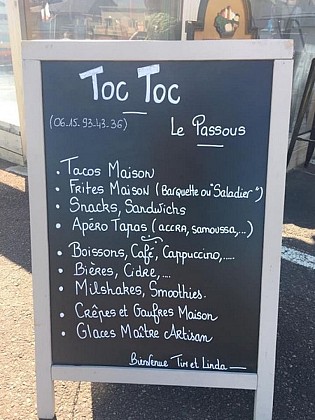 Toc Toc
(06.15.93.43.36)
Le Passous
• Tacos Maison
• Frites Maison (Barquette ou "Saladier")
• Snacks, Sandwichs
• Apéro Tapas (accra, samoussa,...)
• Boissons, Café, Cappuccino,.....
• Bières, Cidre,....
• Milshakes, Smoothies.
• Crêpes et Gaufres Maison
• Glaces Maître Artisan
Bienvenue Tim et Linda